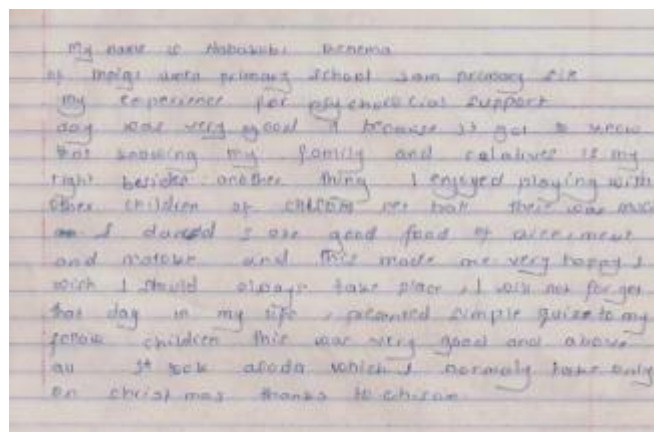 My name is Nabakubi
of primary school I am primary six
My experience for psychosocial support
day was very good because I got to know
that knowing my family and relatives is my
right besides another thing I enjoyed playing with
other children of net ball their was music
I danced I ate good food of rice, meat
and matoke and this made me very happy I
wish I should always take place, I will not forget
that day in my life, I presented simple quize to my
fellow children this was very good and above
all I took a soda which I normaly take only
on christmas thanks to